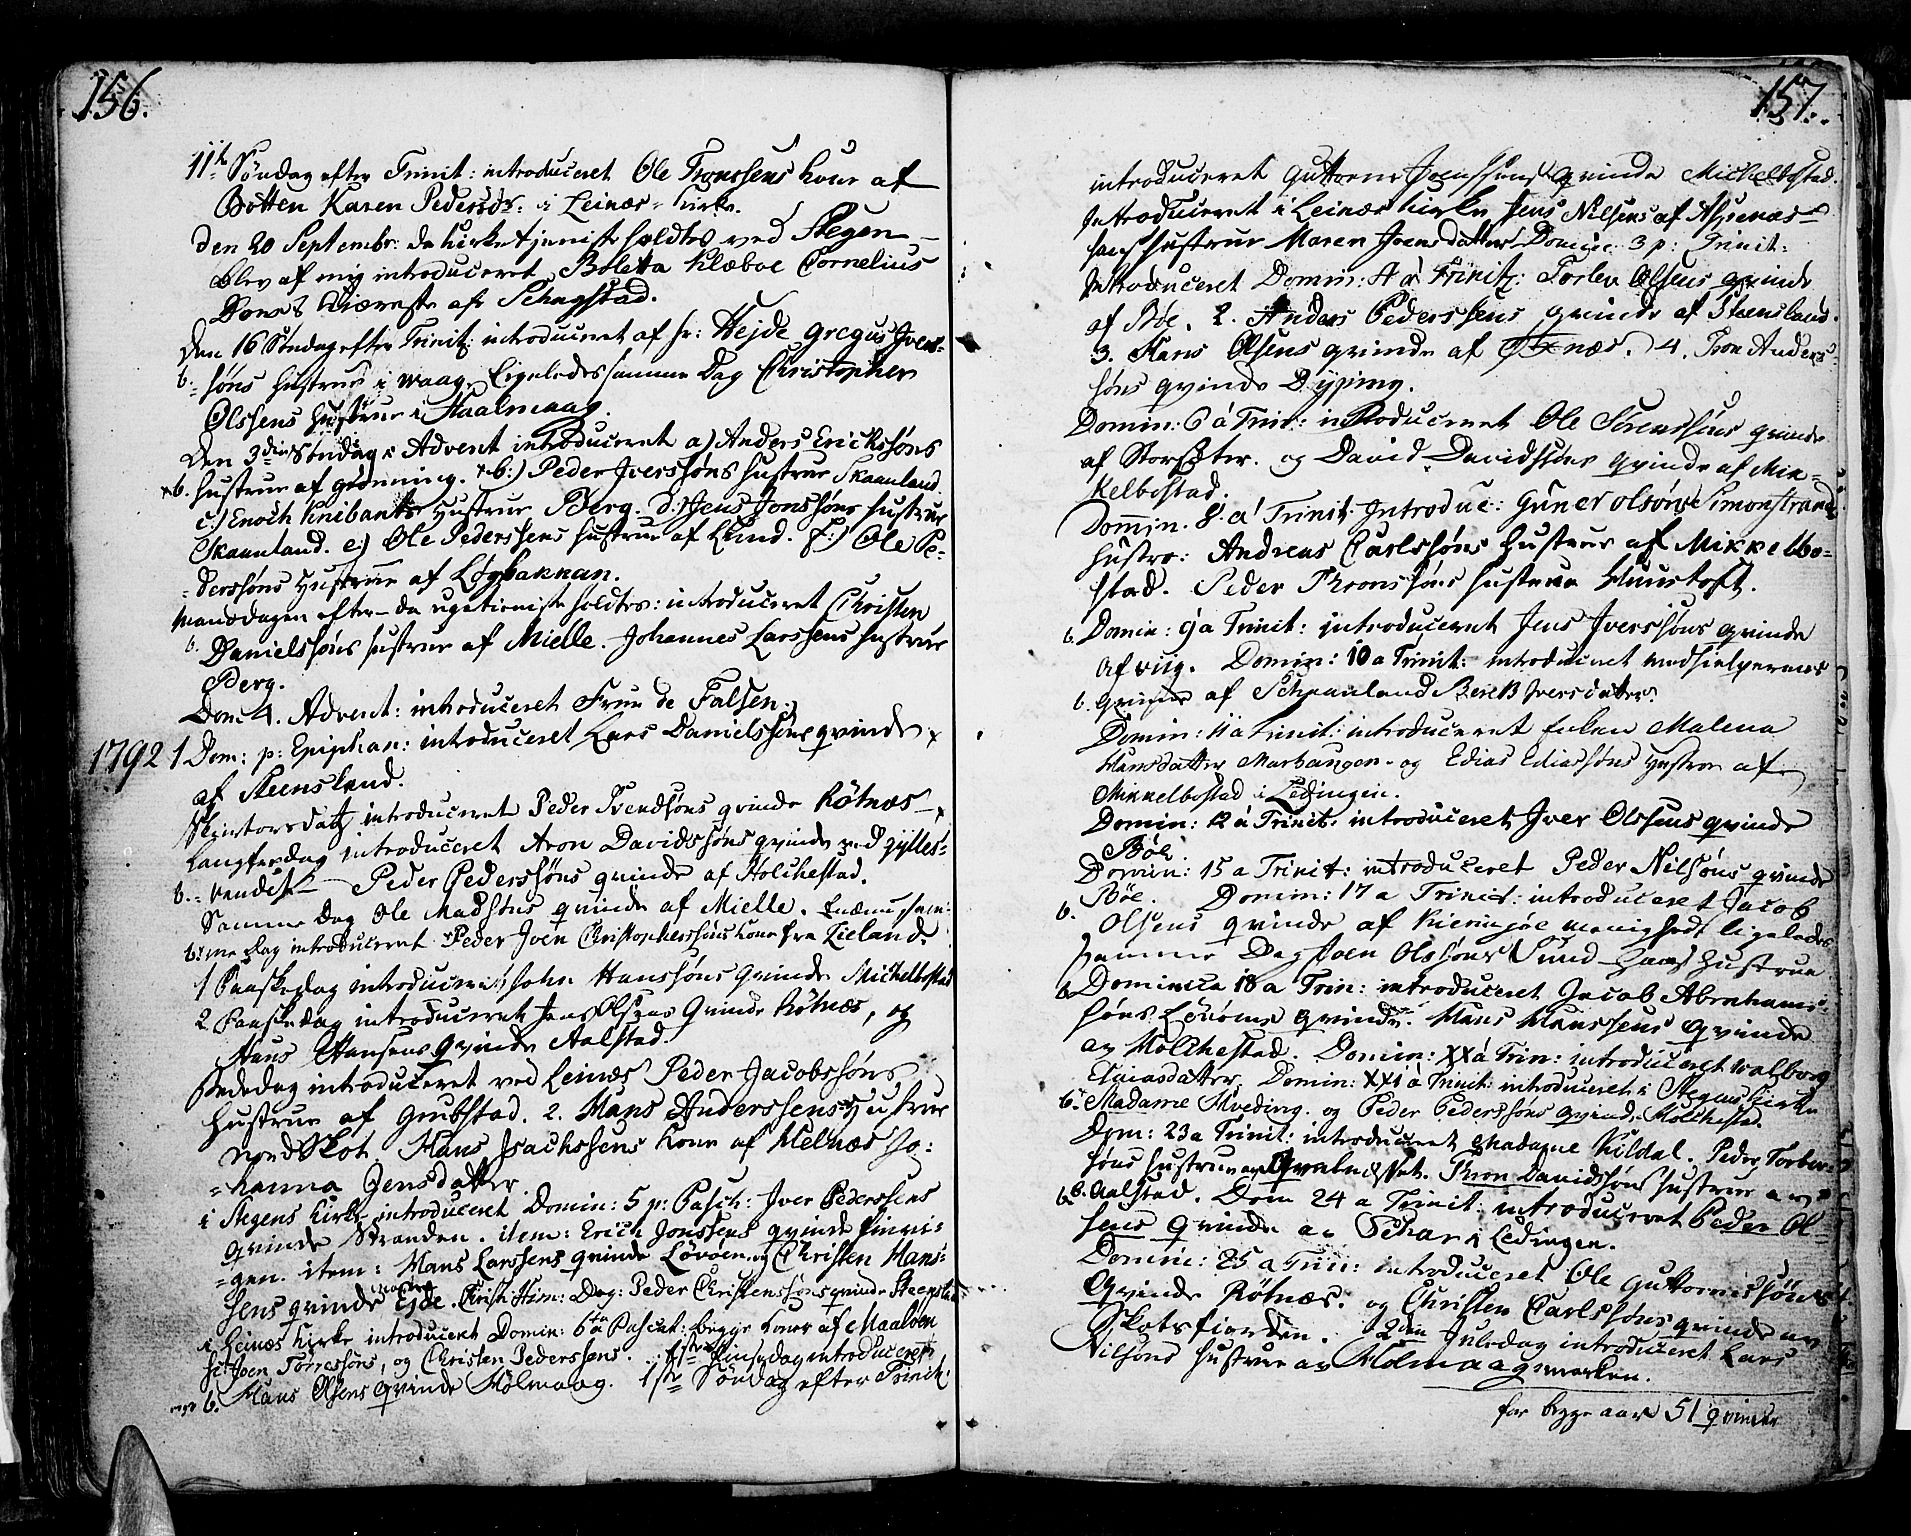 156.
11te Søndag efter Trinit: introduceret Ole Tronssens kone af
Botten Karen Pedersdr: i Leines-kirke.
den 20 Septembr: da kirketjeniste holdtes ved Stegen
blev af mig introduceret Boletta Klæboe Cornelius
Dones kiæreste af Schagstad.
den 16 Søndag efter Trinit: introduceret af hr: Hejde Gregus Iver-
b:- søns hustrue i waag. Ligeledes samme Dag Christopher
Olssens hustrue i Haalmaag.
Den 3die Søndag i Advent introduceret a) Anders Erickssøns
b. hustrue af grønning. b:) Peder Iverssøns hustrue Skaanland
c:) Enoch Knibants hustrue Berg. d:) Jens Jonssøns hustrue
Skaanland. e:) Ole Pederssens hustrue af Lund. f:) Ole Pe-
-derssøns hustrue af Løgbakkan.
Mandagen efter - da ugetieniste holdtes: introduceret Christen
b. Danielssøns hustrue af Mielle. Johannes Larssens hustrue
Berg.
Dom 4. Advent: introduceret Frue de Falsen.
1792 1 Dom: p: Epiphan: introduceret Lars Danielssøns qvinde
af Steensland.
Skiertorsdag introduceret Peder Svendsøns qvinde Røtnæs
Langfredag introduceret Aron Davidssøns qvinde ved gylles-
b.- vandet - Peder Pederssøns qvinde af Holchestad.
Samme Dag Ole Madsøns qvinde af Mielle. Endnu sam-
b: me Dag introduceret Peder Joen Christopherssøns kone fra Tieland.
1 Paaskedag introduceret John Hanssøns qvinde Michelbostad
2 Paaskedag introduceret Jens Olsens Qvinde Røtnæs, og
Hans Hansens qvinde Aalstad.
Bededag introduceret ved Leines Peder Jacobssøns
hustrue af Grutstad. 2. Hans Anderssens Hustrue
Nordskot. Hans Isachssens kone af Helnæs Jo:
-hanna Jensdatter
i Stegens kirke introduceret Domin: 5 p: Pasch: Iver Pederssens
qvinde Stranden. item: Erich Jonssens qvinde finvi-
-gen. item: Hans Larssens qvinde Lövöen. og Christen Hans-
sens qvinde Ejde. Christi Him: Dag: Peder Christenssøns qvinde
i Leines kirke introduceret Domin: 6te a Paschat: begge koner af Maaløen
Joen Torressøns, og Christen Pederssens. 1ste Pinsedag introduceret
b. Hans Olsens qvinde Holmaag. 1ste Søndag efter Trinit:
157.
introduceret Guttorm Joenssens qvinde Michelbostad.
Introduceret i Leines kirke Jens Nilsens af Aspenæs
hans hustrue Maren Joensdatter Domin: 3 p: Trinit:
Introduceret Domin: 4 a Trinit: Torlev Olsens qvinde
af Bøe. 2. Anders Pederssens qvinde af Steensland.
3. Hans Olsens qvinde af næs. 4. Tron Anders-
søns qvinde Dyping.
Domin: 6 a Trin: introduceret Ole Sørenssøns qvinde
af Storsæter. og David Davidssøns qvinde af Mik-
kelbostad.
Domin. 8. a Trinit: Introduc: Guner olsøns Simonstrand
hustro: Andreas Carlssøns hustrue af Mikkelbo-
stad. Peder Thronssøns hustrue Huustoft.
b. Domin: 9 a Trinit: introduceret Jens Iverssøns qvinde
af vug. Domin: 10 a Trinit: introduceret medhielperens
b. qvinde af Schaanland Berett Iversdatter.
Domin: 11 a Trinit: introduceret enken Malena
Hansdatter Markangen - og Edias Ediassøns hustrue af
Mikkelbostad i Lødingen.
Domin: 12 a Trinit: introduceret Iver Olssens qvinde
Bøe.
Domin: 15 a Trinit: introduceret Peder Nilsøns qvinde
Bøe. Domin: 17 a Trinit: introduceret Jacob
b. Olsens qvinde af menighed ligeledes
samme Dag Joen Olssøns Sund hans hustrue
b. Dominica 18 a Trin: introduceret Jacob Abrahams-
søns Løvøens qvinde. Hans Hanssens qvinde
av Holchestad. Domin: XX a Trin: introduceret walborg
Eliasdatter. Domin: XXI a Trinit: introduceret i Stegens kirke
b. Madame Hveding. og Peder Pederssøns qvinde Holchestad.
Dom: 23 a Trinit: introduceret Madame Kildal. Peder Torber-
søns hustrue Thron Davidssøns hustrue av
b. Aalstad. Dom 24 a Trinit: introduceret Peder Ol-
sens qvinde av Schar i Lødingen.
Domin: 25 a Trin: introduceret Ole Guttormssøns
qvinde Røtnæs. og Christen Carlssøns qvinde av
Skotsfiorden. 2den Juledag introduceret Lars
Nilsøns hustrue av Holmaagsmarken.
for begge aar 51 qvinder